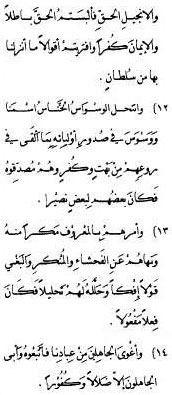 والانجيل الحق فألبستم الحق باطلاً
والإيمان كفراً وافتريتم أقوالاً ما أنزلنا
بها من سلطان .
(١٢) وانتحل الوسواس الخناس اسمنا
ووسوس في صدور أوليائه بما ألقى في
روعهم من بهت وكفر وهم مصدقوه
فكان بعضهم لبعض نصيراً .
(١٣) وأمرهم بالمعروف مكراً منه
ونهاهم عن الفحشاء والمنكر والبغي
قولاً إفكاً وحلله لهم تحليلاً فكان
فعلاً مفعولاً .
(١٤) وأغوى الجاهلين من عبادنا فاتبعوه وأبى
الجاهلون إلا ضلالاً وكفوراً .